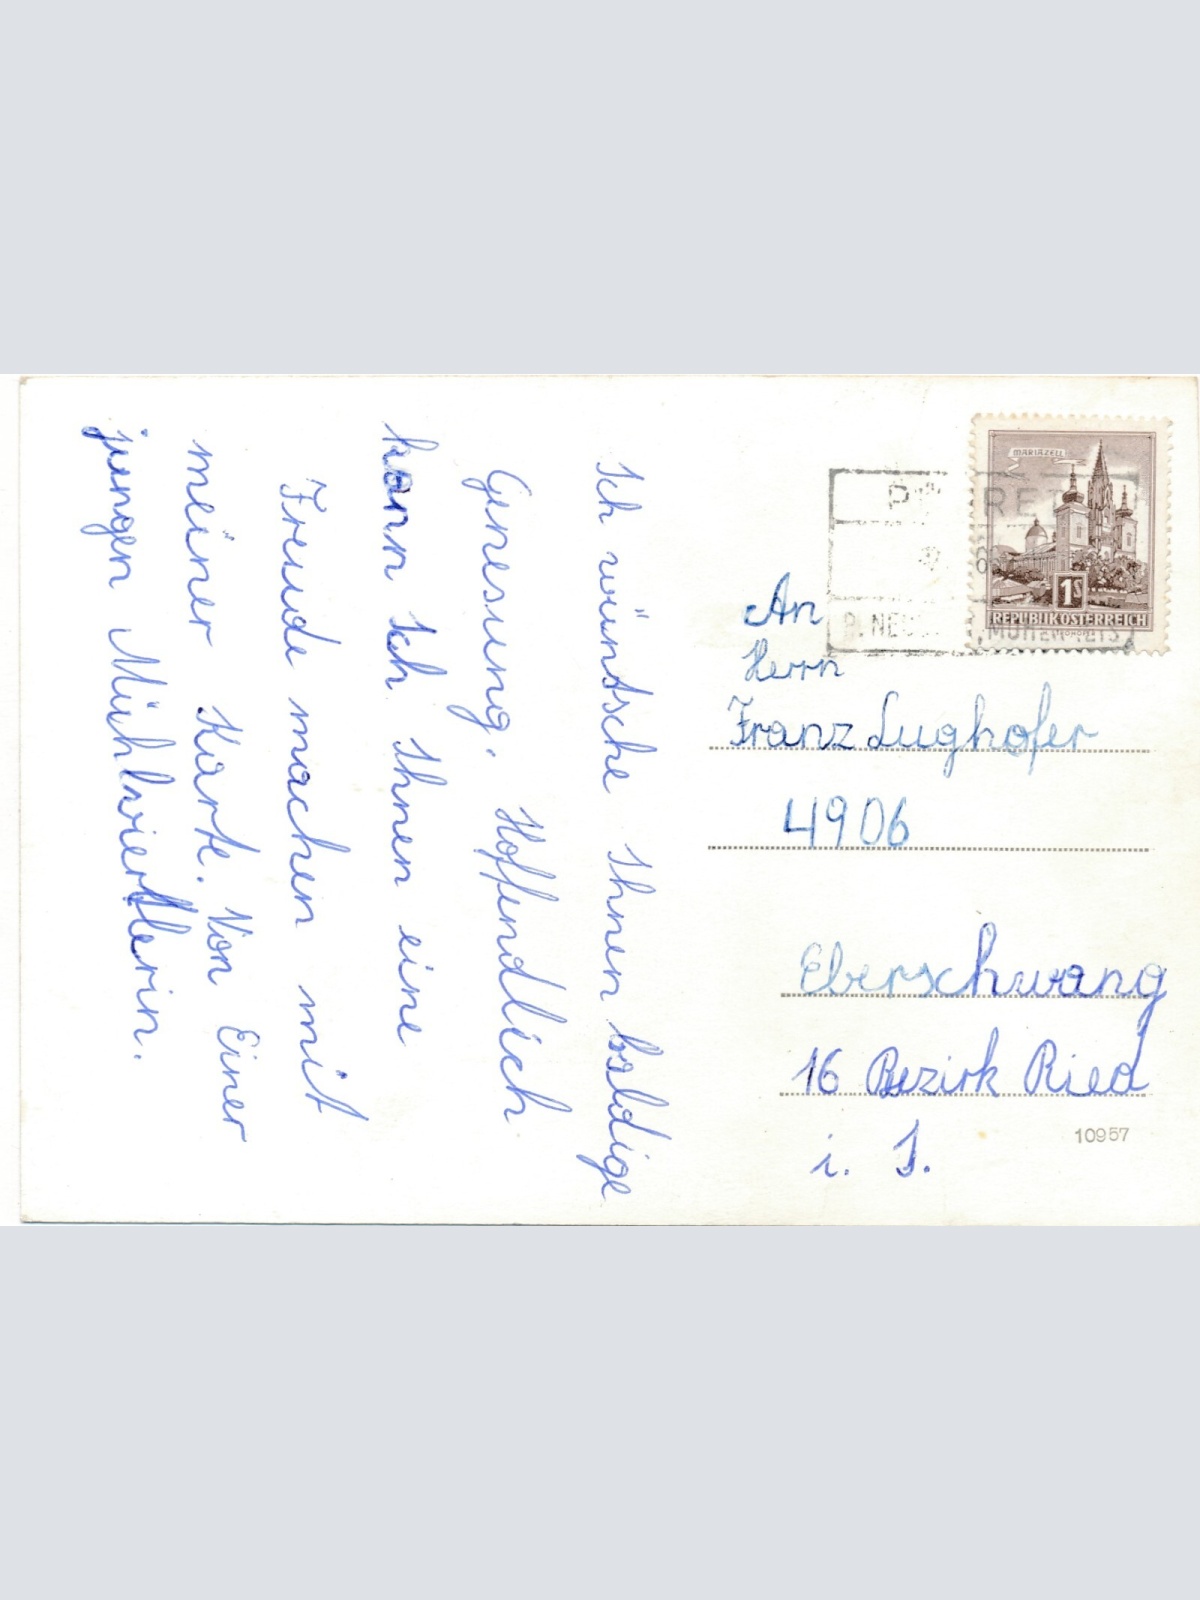 Ich wünsche Ihnen baldige
Genesung. Hoffendlich
kann Ich Ihnen eine
Freude machen mit
meiner Karte. Von Einer
jungen Mühlviertlerin.
MARIAZELL
1S
REPUBLIK ÖSTERREICH
An
Herrn
Franz Lughofer
4906
Eberschwang
16 Bezirk Ried
i. I.
10957